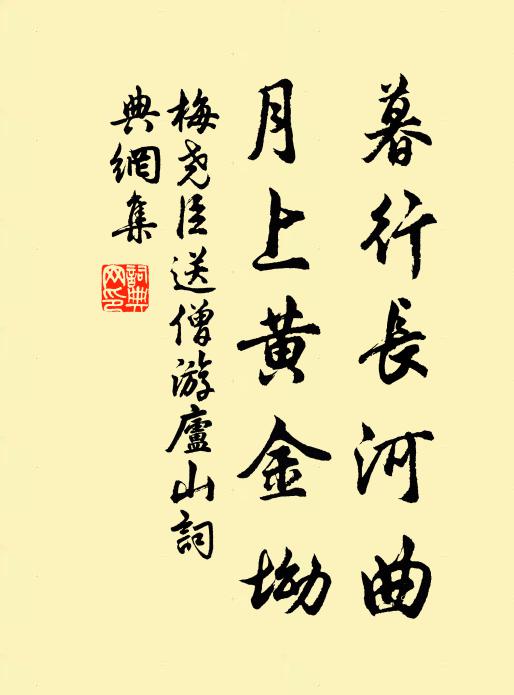 暮行長河曲
月上黄金坳
梅尧臣送僧游廬山詞
典網集
詞典
网印